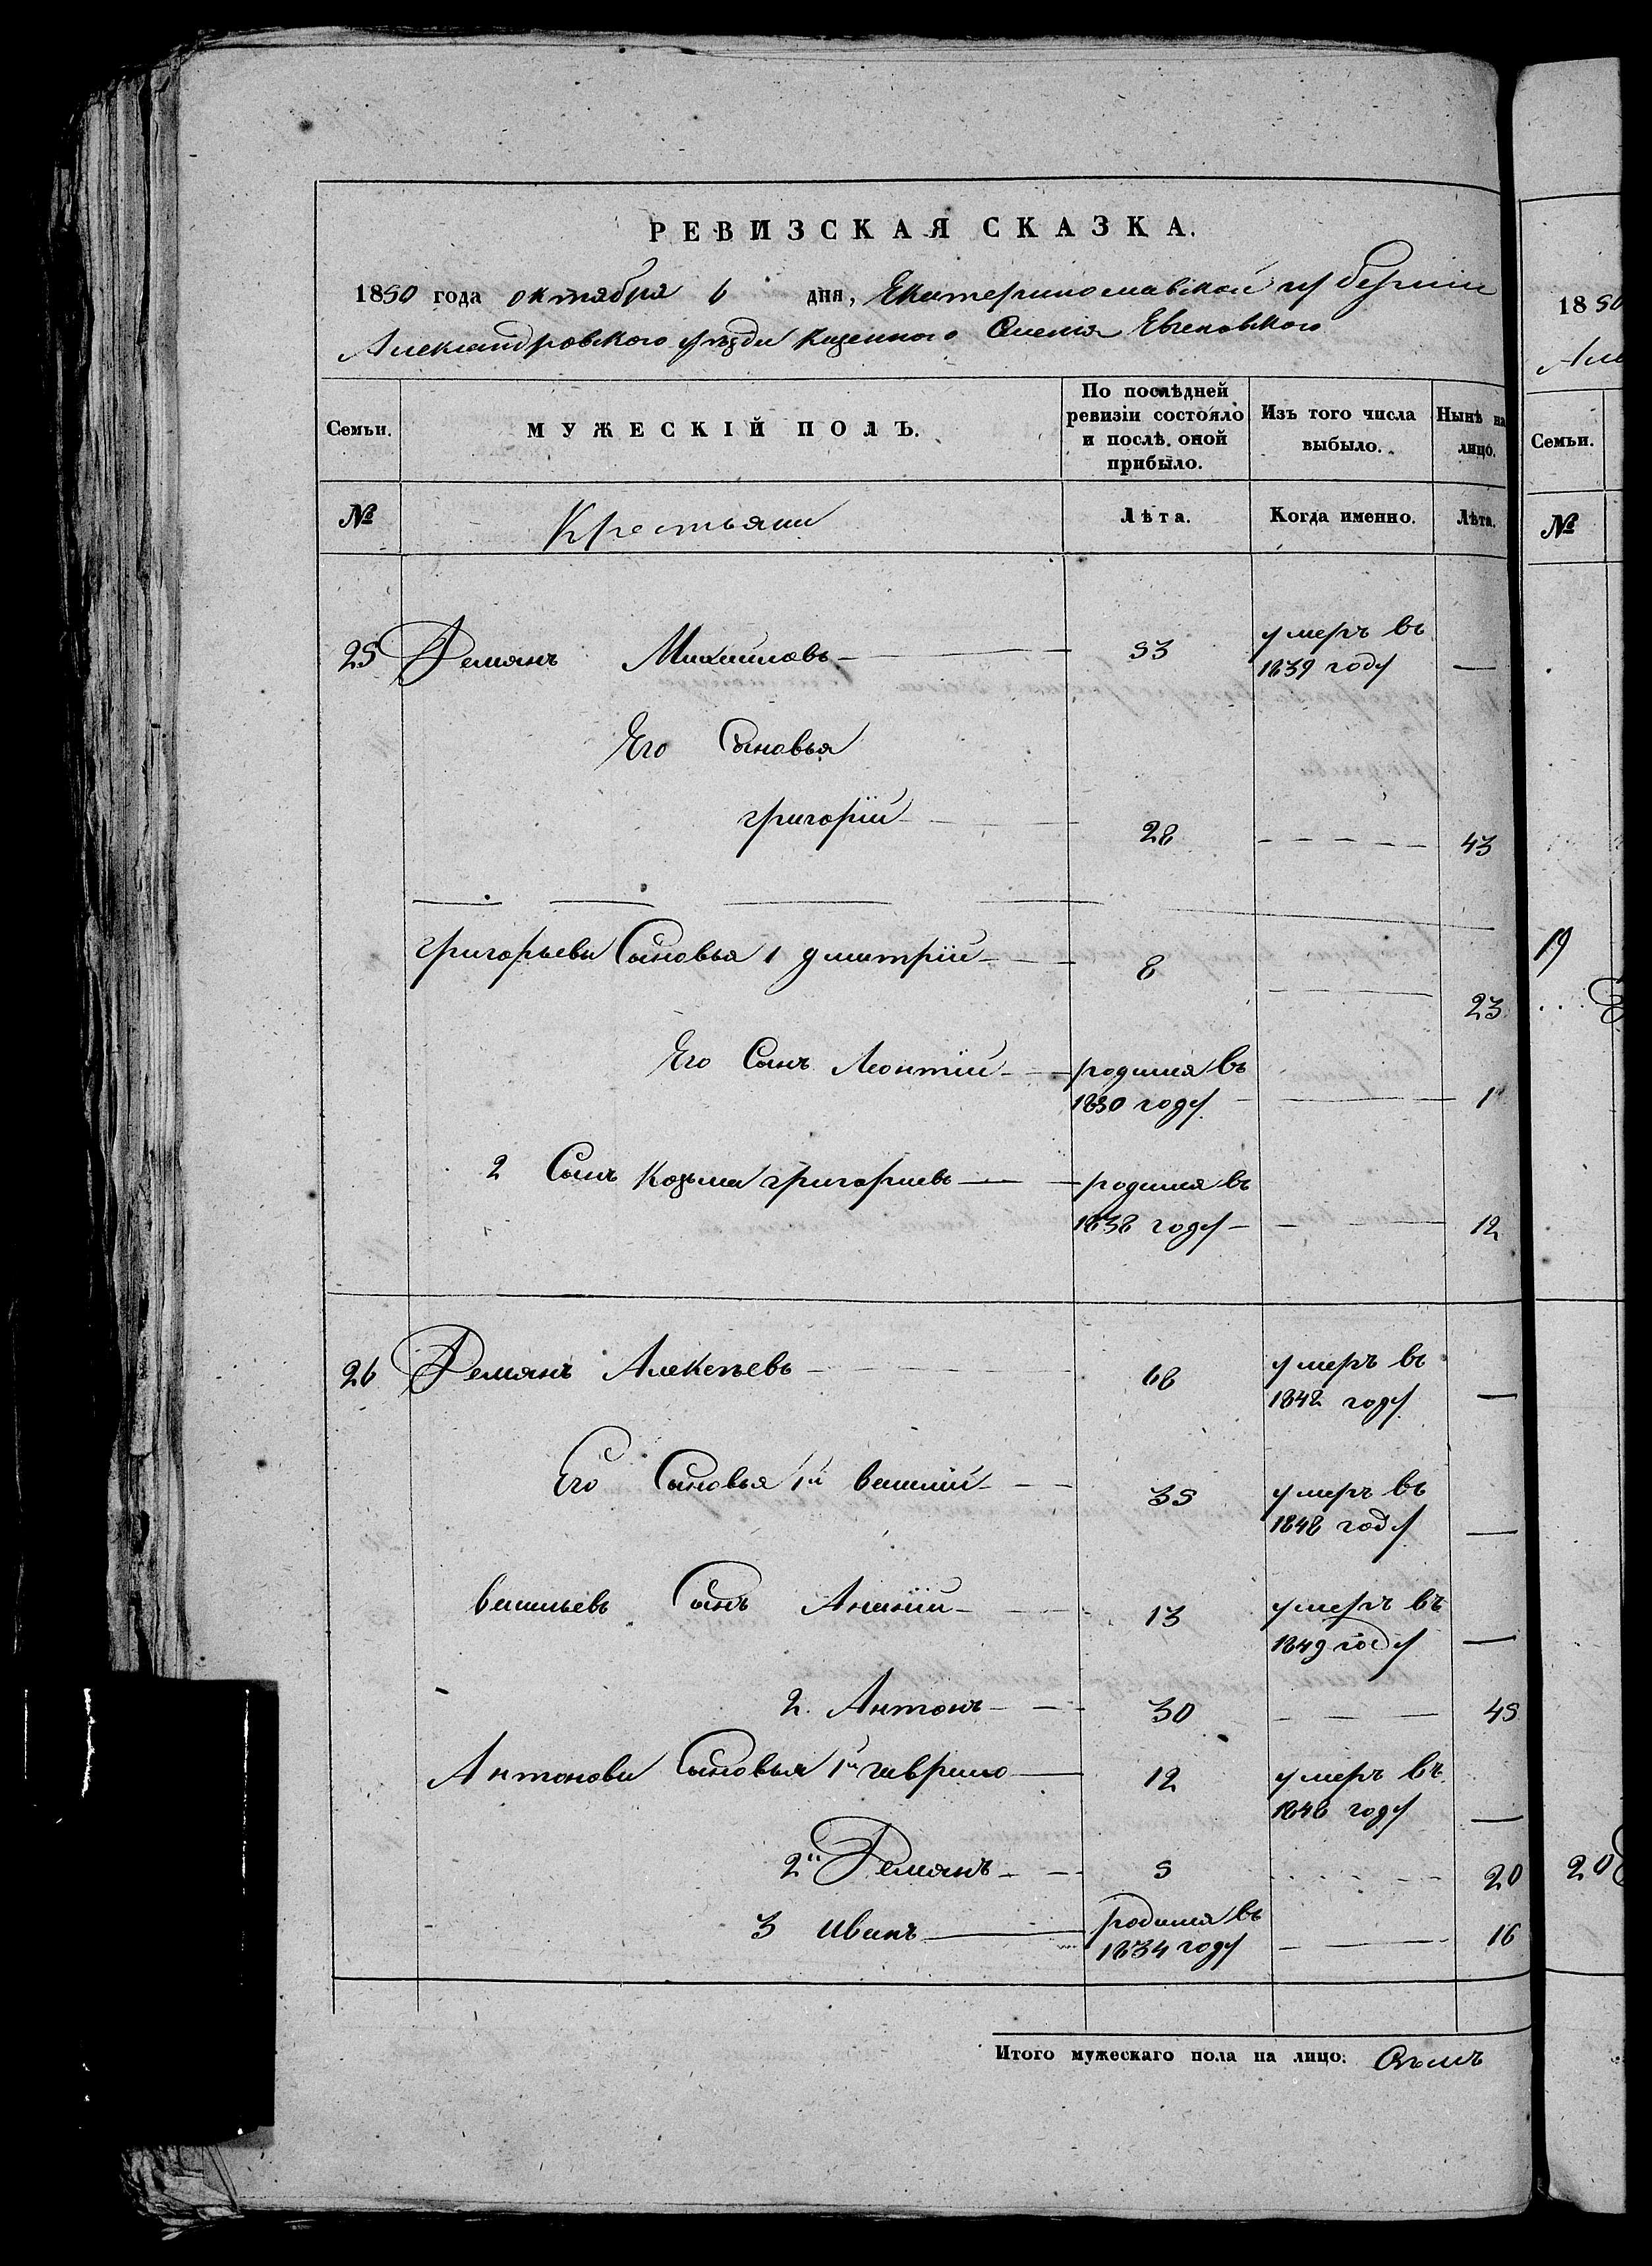 РЕВИЗСКАЯ СКАЗКА.
1850 года октября 6 дня, Екатеринославской губерніи
Александровского уѣзда казенного Селенія
Семьи. МУЖЕСКІЙ ПОЛЪ. По послѣдней ревизіи состояло и послѣ оной прибыло. Изъ того числа выбыло. Нынѣ на лицо.
№ Крестьяни Лѣта. Когда именно. Лѣта.
25 Демянъ Михаиловъ 53 умеръ въ
1839 году —
Его Сыновья
григорій 28 43
григорьевы Сыновья 1 дмитрій 8
23
Его Сынъ Леонтій родился въ
1850 году 1
2 Сынъ Козьма григориевъ родился въ
1838 году 12
26 Демянъ Алексѣевъ 68 умеръ въ
1842 году —
Его Сыновья 1й василій 35 умеръ въ
1848 году —
васильевъ Сынъ Ананій 13 умеръ въ
1849 году —
2. Антонъ 30 45
Антоновы Сыновья 1й гаврило 12 умеръ въ
1848 году —
2й Демянъ 5 20
3 иванъ родился въ
1834 году 16
Итого мужескаго пола на лицо: Сѣмъ
18 50
Але
Семьи.
№
19
20